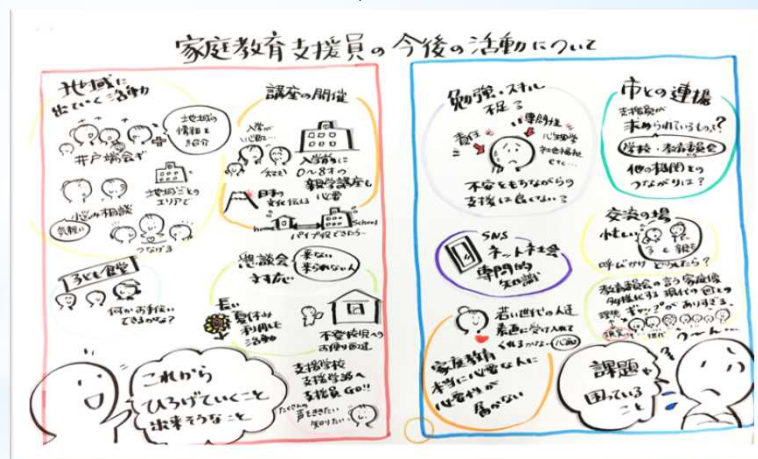 家庭教育支援員の今後の活動について
地域に
出ていく活動
地域の
情報を
紹介
井戸端会ぎ
地域ごとの
エリアで
小さな相談
気軽い
つなげる
子ども食堂
何かお手伝い
できるかな?
講座の開催
入学が
心配…
入学前に
0~8才の
親学講座も
必要
日本の
文化伝は
home
School
パイプ役できたら…
懇談会
来ない
来られない人
長い
夏休み
利用した
活動
不登校児への
お便り配達
支援学校
支援学級へ
支援員GO!!
たくさんの
声をききたい
知りたい
これから
ひろげていくこと
出来そうなこと
勉強・スキル
不足?
責任
専門性
心理学
社会福祉
etc…
不安をもちながらの
支援は良くない?
SNS
ネット社会
専門的
知識
若い世代の人達
素直に受け入れて
くれるかな…
心配
家庭教育
本当に必要な人に
必要性が
届かない
市との連携
支援員が
求められているものは?
学校・教育委員会
他の機関との
つながりは?
交流の場
忙しい
子と親
呼びかけどうしたら?
教育委員会の言う家庭像
多様化する現代の
理想
ギャップがありすぎる。
現実
う~ん…
課題や
困っている
こと